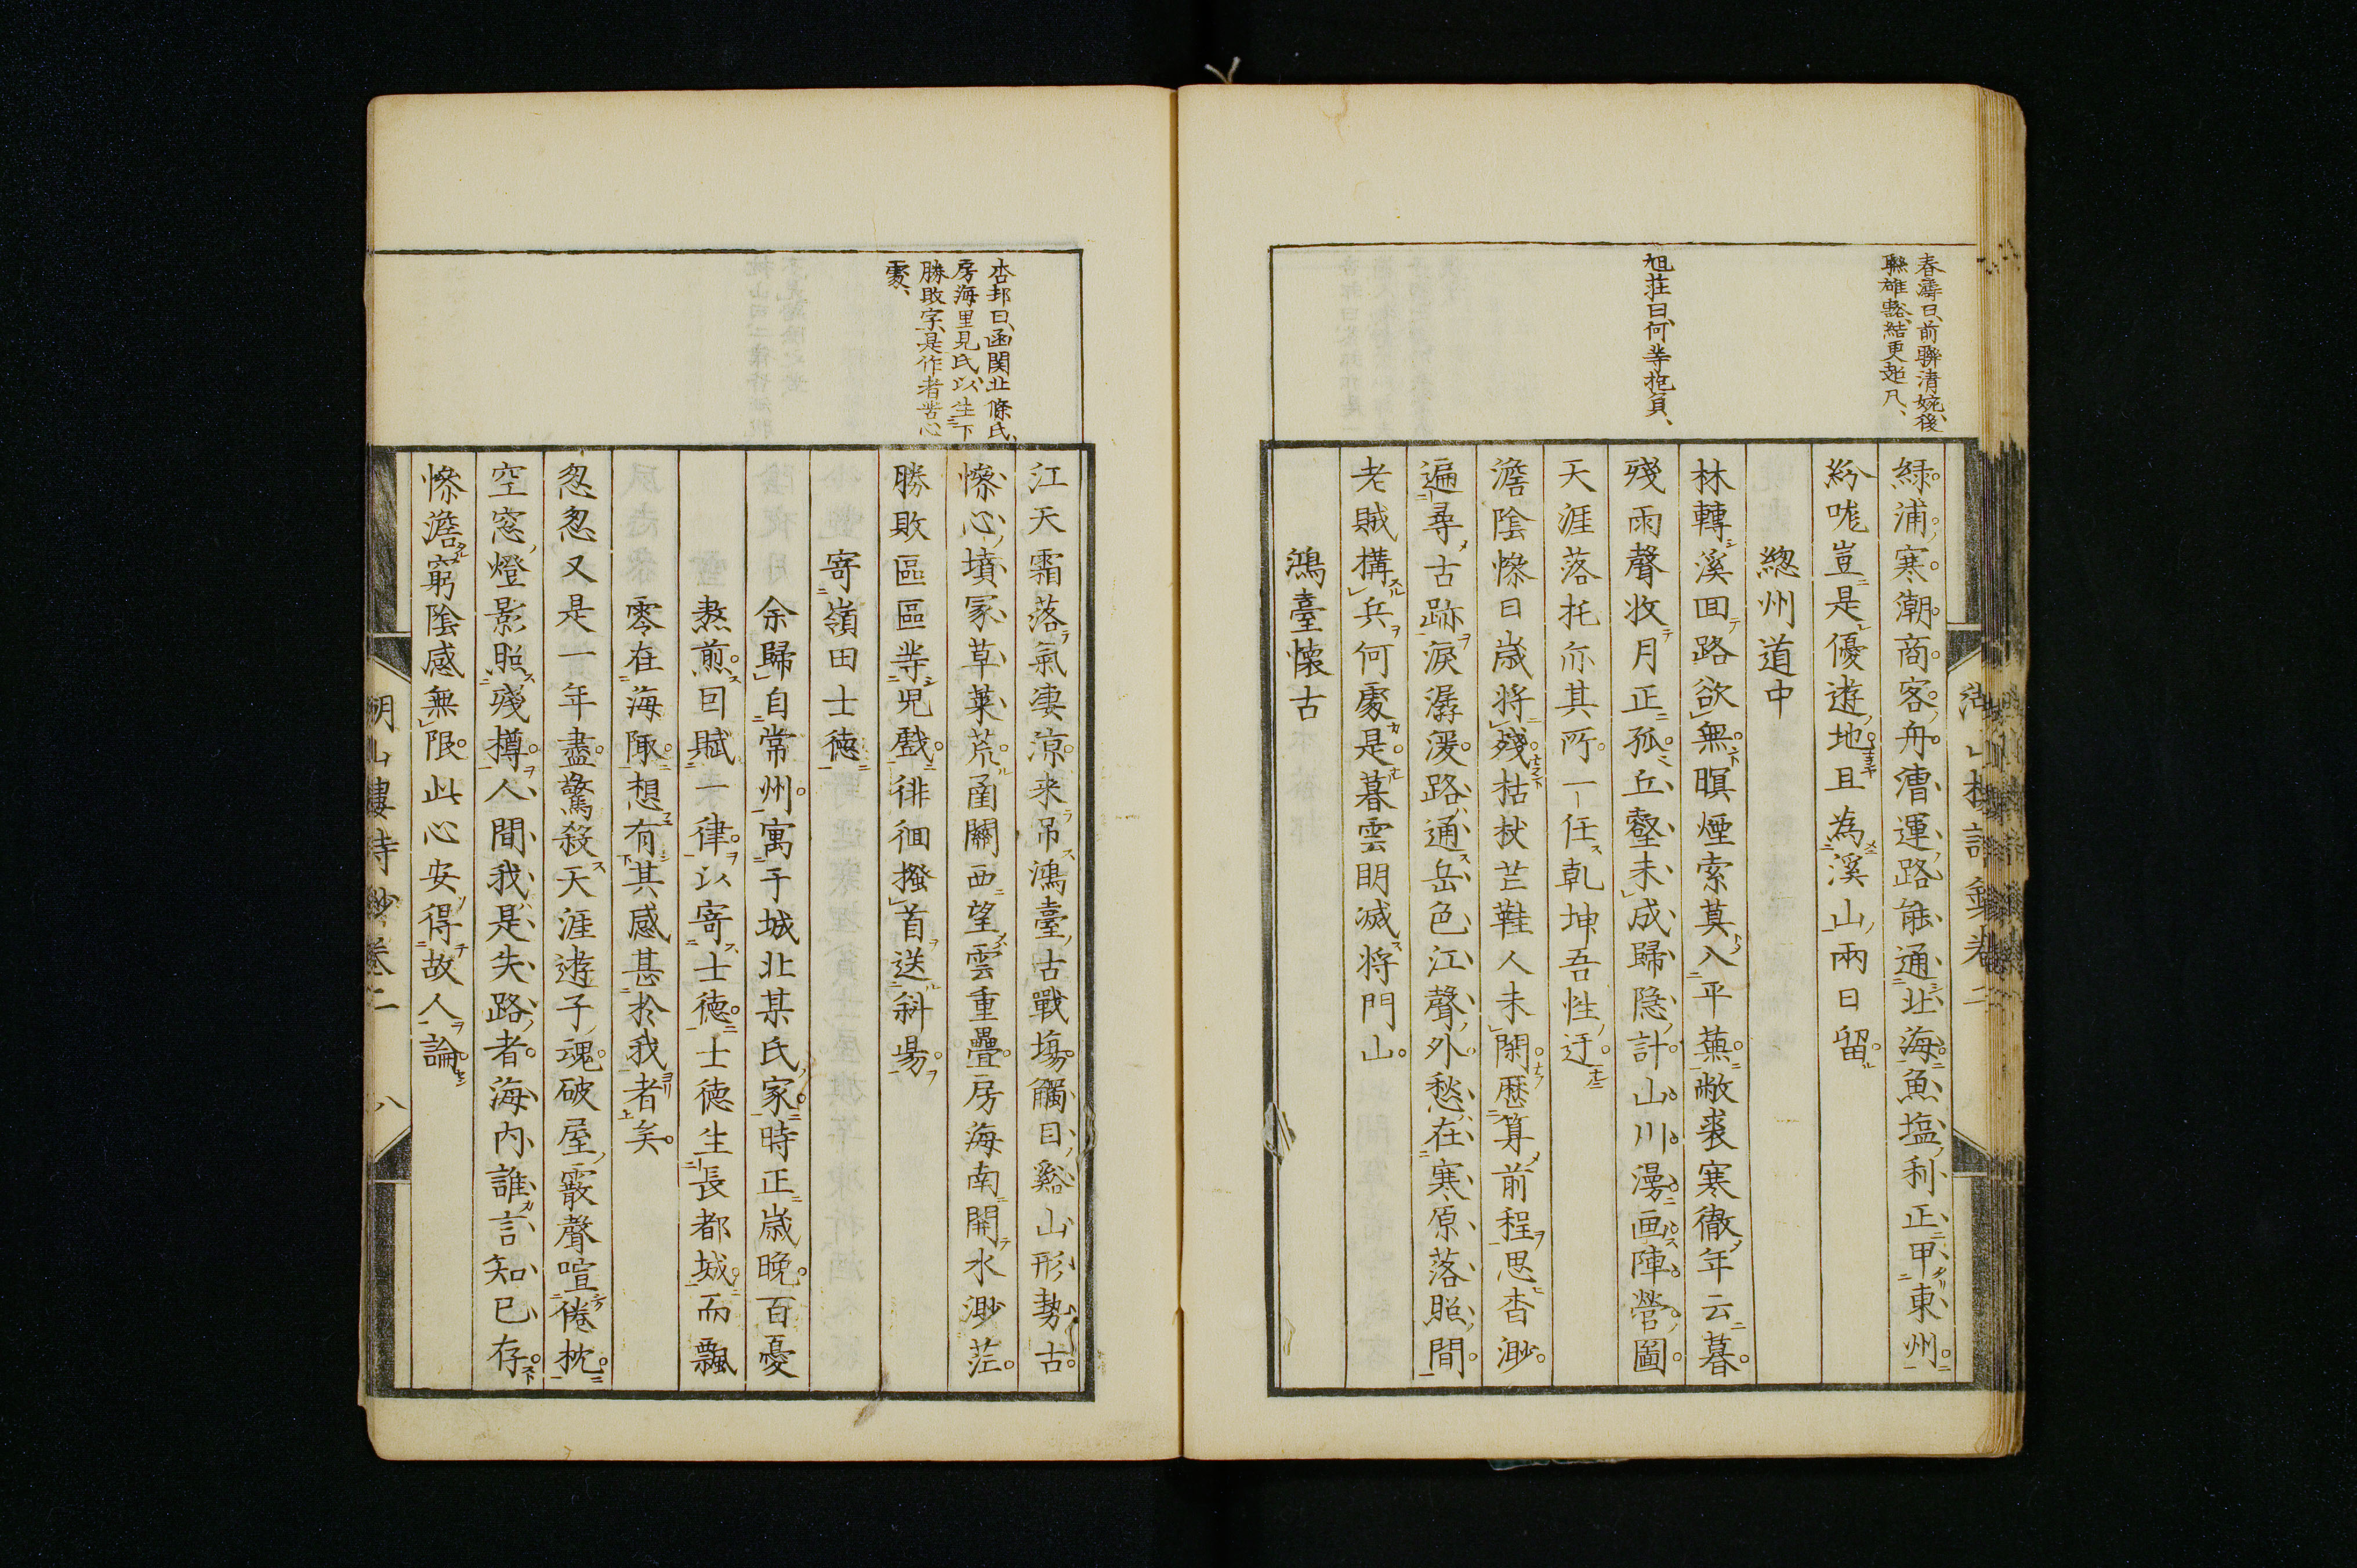 春濤曰、前聯清婉、後
聯雄豁、結更超凡、
緑浦寒潮商客舟漕運路能通北海魚塩利正甲東州
紛哤豈是優遊地且為溪山兩日留
緫州道中
林轉溪回路欲無暝煙索莫入平蕪敝裘寒徹年云暮
旭荘曰、何等抱負、
殘雨聲收月正孤丘壑未成歸隐計山川漫画陣營圖
天涯落托亦其所一任乾坤吾性迂
澹陰慘日歳將殘枯杖芒鞋人未閑歴算前程思杳渺
遍尋古跡淚潺湲路通岳色江聲外愁在寒原落照間
老賊構兵何處是暮雲明滅将門山
鴻臺懷古
杏邨曰、函関北條氏、
房海里見氏、以生下
勝敗字、是作者苦心
處、
江天霜落氣凄涼来吊鴻臺古戰塲觸目谿山形勢古
慘心墳冢草萊荒函關西望雲重疊房海南開水渺茫
勝敗區區等児戲徘徊搔首送斜陽
寄嶺田士徳
余歸自常州寓于城北某氏家時正歳晩百憂
熬煎因賦一律以寄士徳士徳生長都城而飄
零在海陬想有其感甚於我者矣
忽忽又是一年盡驚殺天涯遊子魂破屋霰聲喧倦枕
空窓燈影照殘樽人間我是失路者海内誰言知已存
慘澹窮陰感無限此心安得故人論
湖山樓詩鈔卷二
八